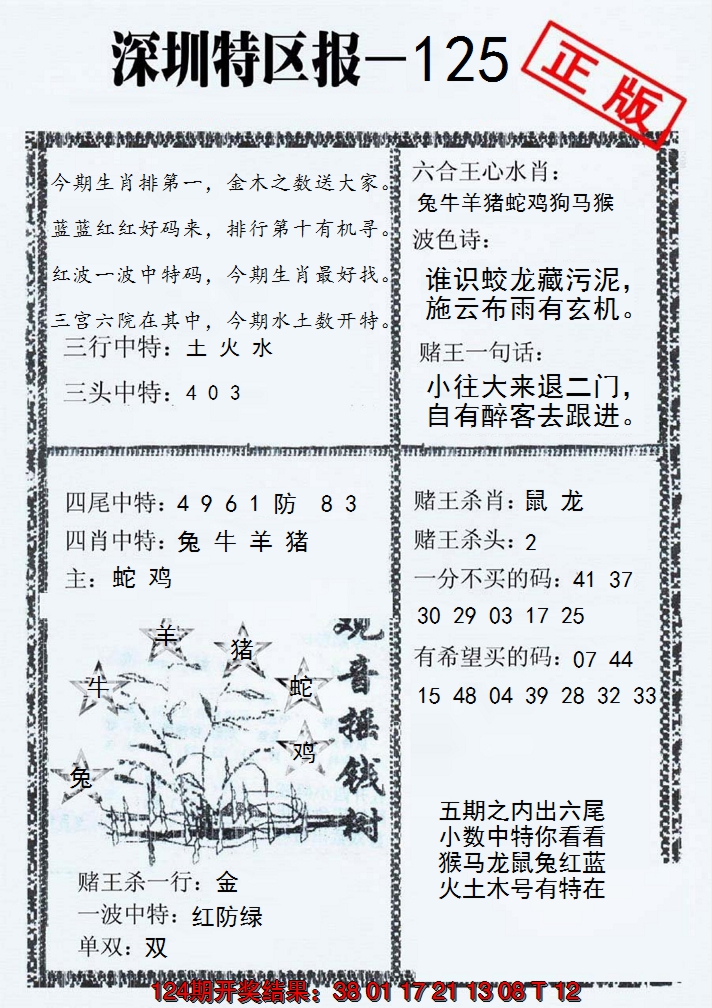 深圳特区报-125
正版
今期生肖排第一，金木之数送大家。
蓝蓝红红好码来，排行第十有机寻。
红波一波中特码，今期生肖最好找。
三宫六院在其中，今期水土数开特。
三行中特：土 火 水
三头中特：4 0 3
六合王心水肖：
兔牛羊猪蛇鸡狗马猴
波色诗：
谁识蛟龙藏污泥，
施云布雨有玄机。
赌王一句话：
小往大来退二门，
自有醉客去跟进。
四尾中特：4 9 6 1 防 8 3
四肖中特：兔 牛 羊 猪
主：蛇 鸡
羊
猪
牛
蛇
鸡
兔
观音摇钱树
赌王杀一行：金
一波中特：红防绿
单双：双
赌王杀肖：鼠 龙
赌王杀头：2
一分不买的码：41 37
30 29 03 17 25
有希望买的码：07 44
15 48 04 39 28 32 33
五期之内出六尾
小数中特你看看
猴马龙鼠兔红蓝
火土木号有特在
124期开奖结果：38 01 17 21 13 08 T 12